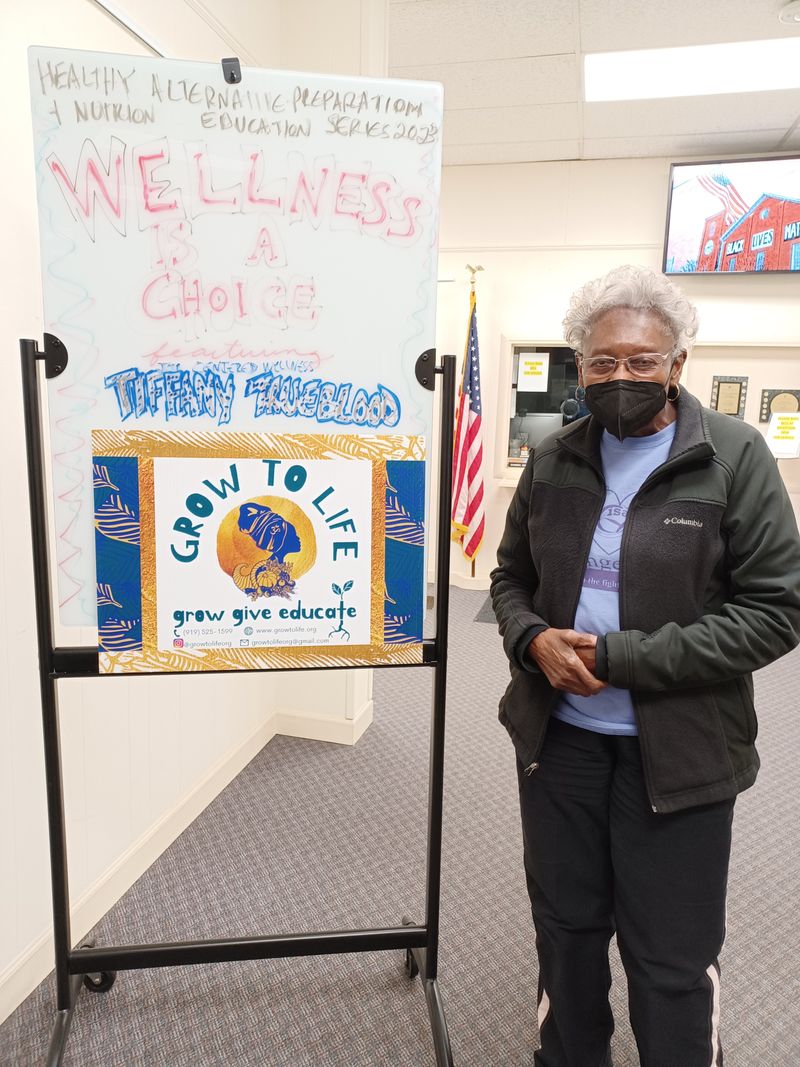 HEALTHY ALTERNATIVE PREPARATION
+ NUTRITION EDUCATION SERIES 2023
WELLNESS
IS A
CHOICE
featuring
WELLNESS
TIFFANY TRUEBLOOD
GROW TO LIFE
grow give educate
(919) 525-1599 www.growtolife.org
@growtolifeorg growtolifeorg@gmail.com
BLACK LIVES MAT
Columbia
the fight